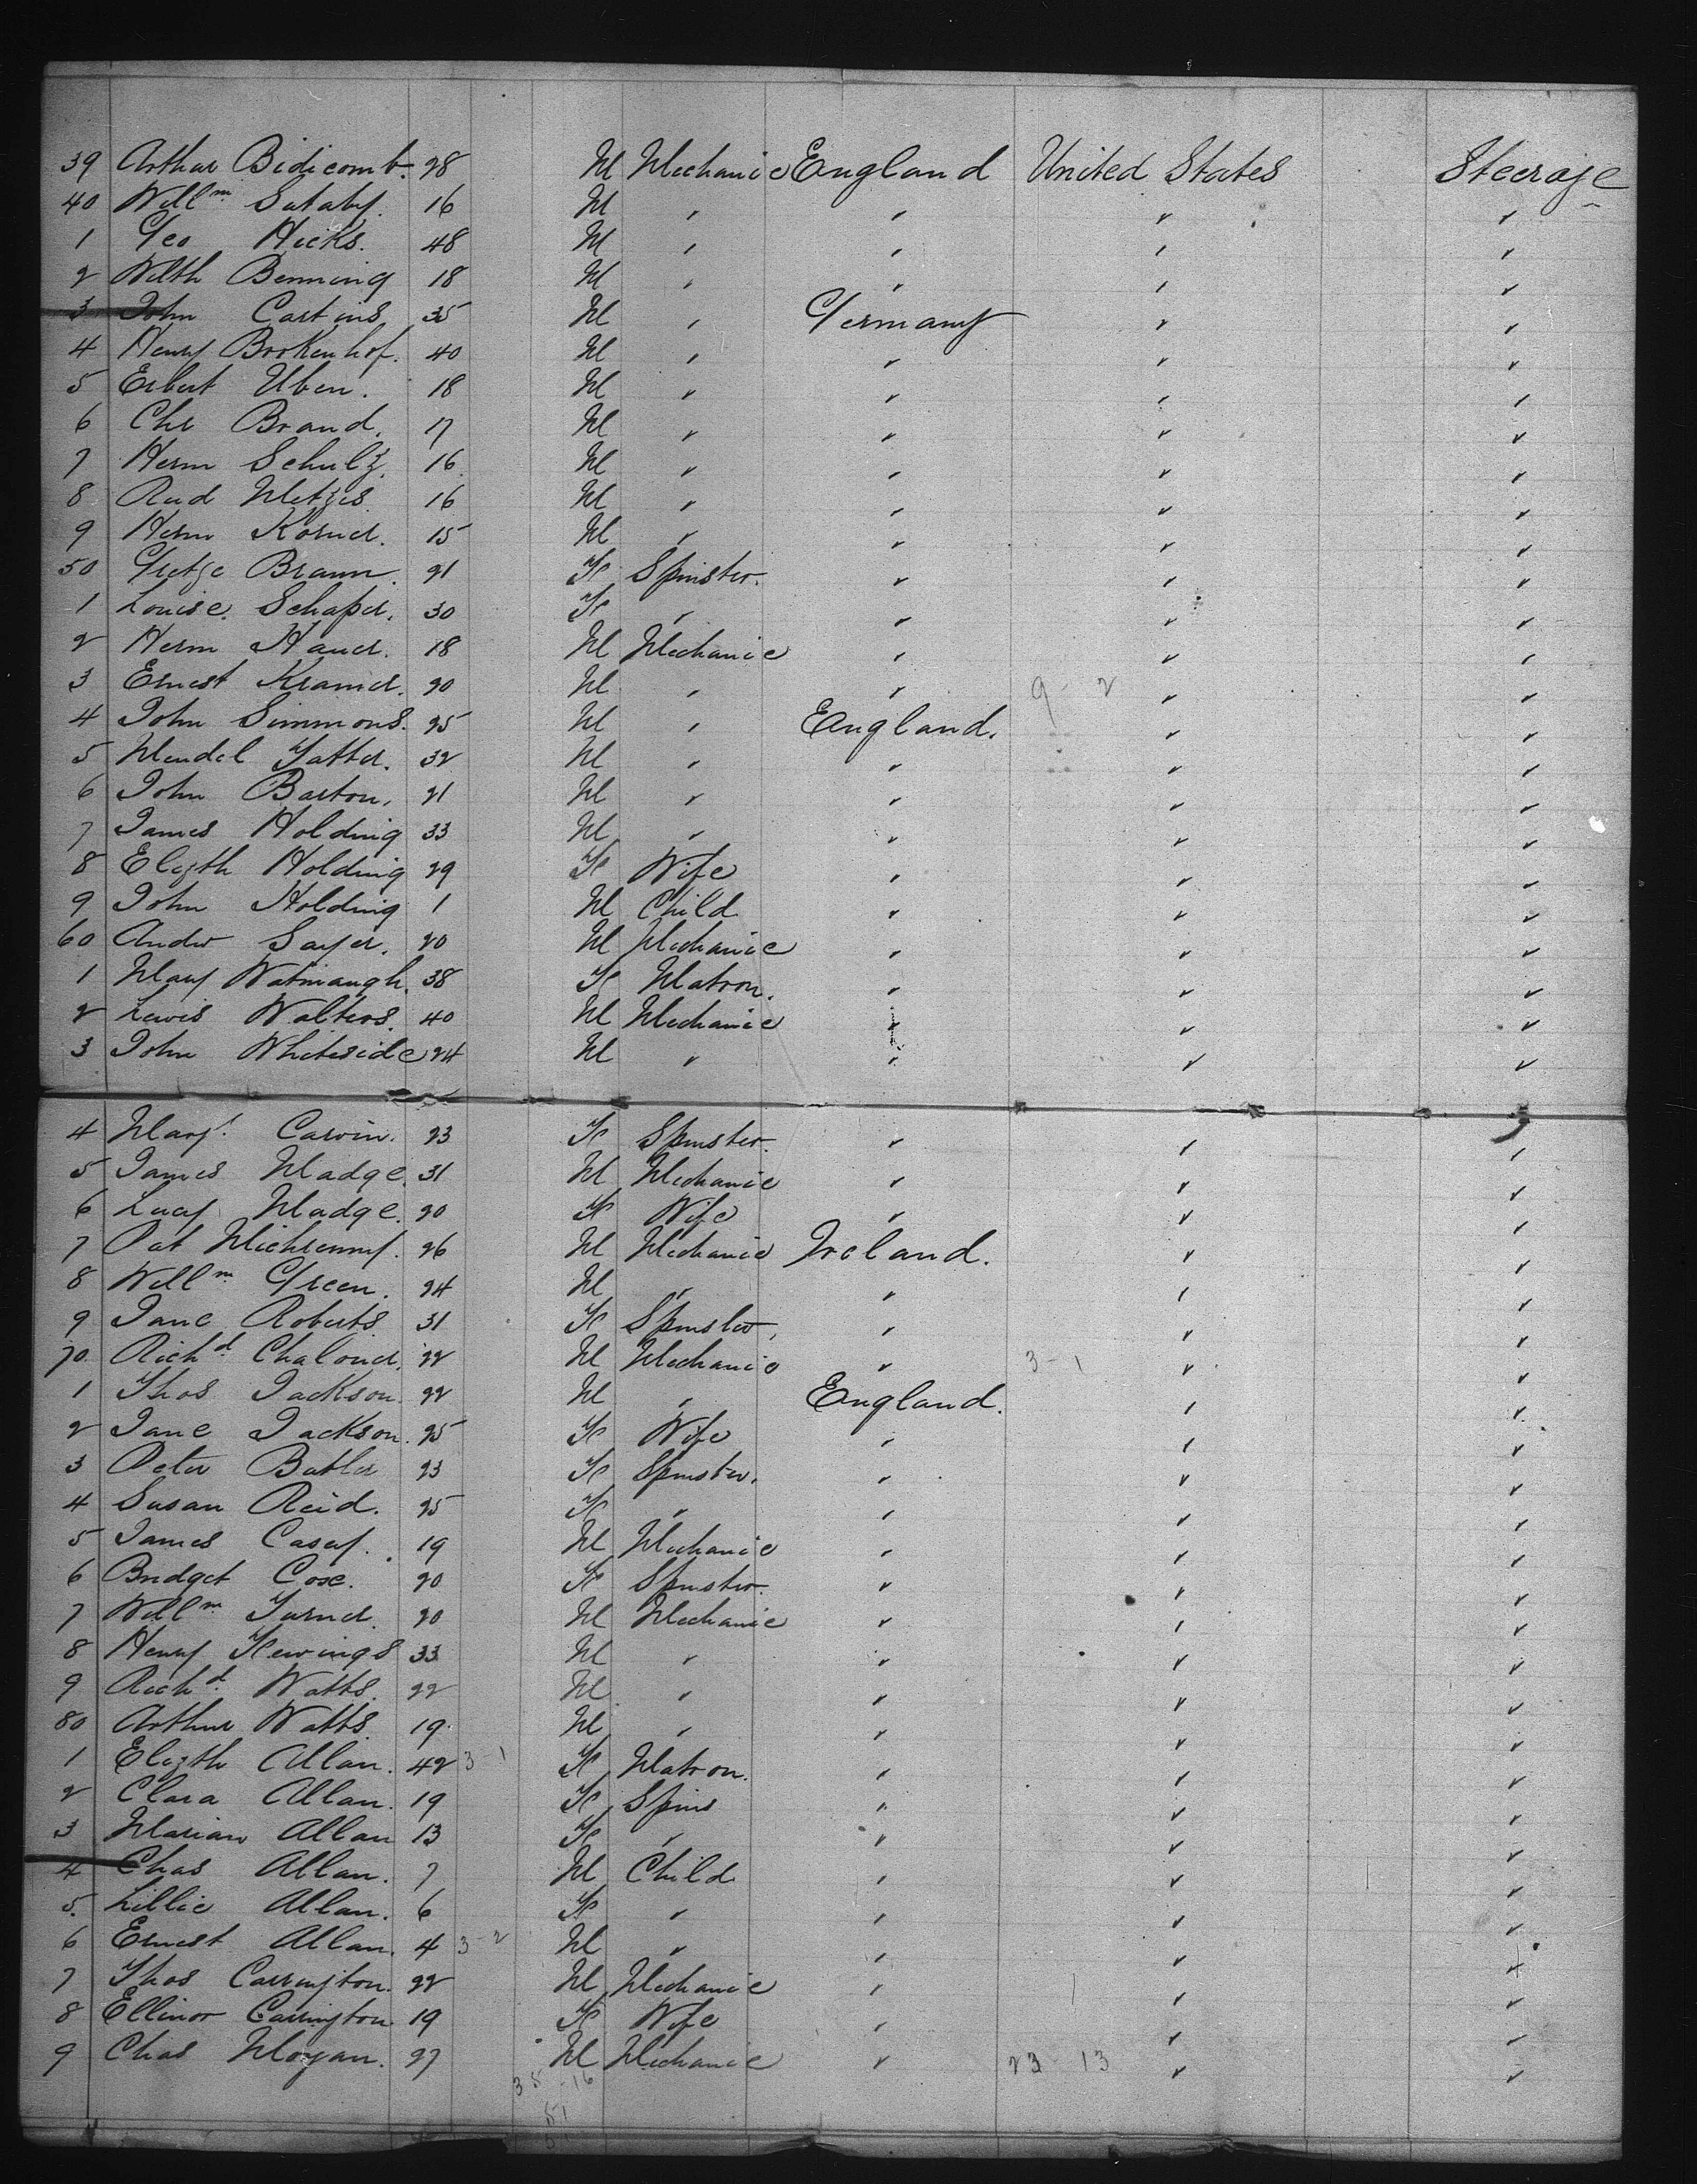 39 Arthur Bidicomb. 28 M Mechanic England United States Steerage
40 Willm Sutaby. 16 M " " " "
1 Geo Hicks. 48 M " " " "
2 Wilth Benning 18 M " " " "
3 John Castins 35 M " Germany " "
4 Henry Brokenhof. 40 M " " " "
5 Erbert Uben. 18 M " " " "
6 Chr Brand. 17 M " " " "
7 Herm Schulz. 16 M " " " "
8 Rud Metzes 16 M " " " "
9 Herm Korner. 15 M " " " "
50 Gretge Braun. 21 F Spinster. " " "
1 Louise Schaper. 30 F " " " "
2 Herm Hauer. 18 M Mechanic " " "
3 Ernest Kramer. 20 M " " 9-2 " "
4 John Simmons. 25 M " England. " "
5 Mendel Yatter. 32 M " " " "
6 John Barton. 21 M " " " "
7 James Holding 33 M " " " "
8 Elizth Holding 29 F Wife " " "
9 John Holding 1 M Child " " "
60 Andw Sayer. 20 M Mechanic " " "
1 Mary Watmaugh. 38 F Matron. " " "
2 Lewis Walters. 40 M Mechanic " " "
3 John Whiteside 24 M " " " "
4 Margt. Carvin. 23 F Spinster. " " "
5 James Madge. 31 M Mechanic " " "
6 Lucy Madge. 20 F Wife " " "
7 Pat 26 M Mechanic Ireland. " "
8 Willm Green. 24 M " " " "
9 Jane Roberts 31 F Spinster, " " "
70 Richd Chaloner. 22 M Mechanic " 3-1 " "
1 Thos Jackson. 22 M " England. " "
2 Jane Jackson. 25 F Wife " " "
3 Peter Butler 23 F Spinster. " " "
4 Susan Reid. 25 F " " " "
5 James Casey. 19 M Mechanic " " "
6 Bridget Cose. 20 F Spinster. " " "
7 Willm Turner. 20 M Mechanic " " "
8 Henry Hewings 33 M " " " "
9 Richd Watts. 22 M " " " "
80 Arthur Watts 19. M " " " "
1 Elizth Allan. 42 3-1 F Matron. " " "
2 Clara Allan. 19 F Spins " " "
3 Marian Allan 13 F " " " "
4 Chas Allan. 7 M Child " " "
5. Lillie Allan. 6 F " " " "
6 Ernest Allan. 4 3-2 M " " " "
7 Thos Carrington. 22 M Mechanic " " "
8 Ellinor Carrington. 19 F Wife " " "
9 Chas Morgan. 27 M Mechanic " 23 13 " "
38 - 16
51